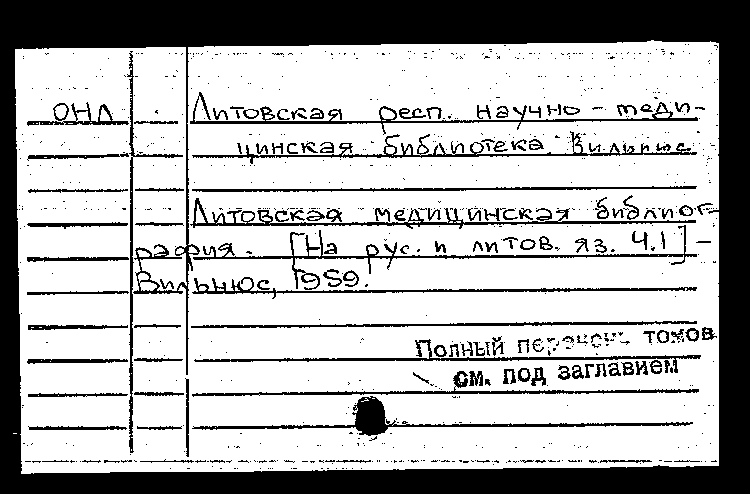 ОНЛ Литовская респ. научно-меди-
цинская библиотека Вильнюс
Литовская медицинская библиог-
рафия. [На рус. и литов. яз. Ч.1] –
Вильнюс, 1959.
Полный перечень томов
см. под заглавием